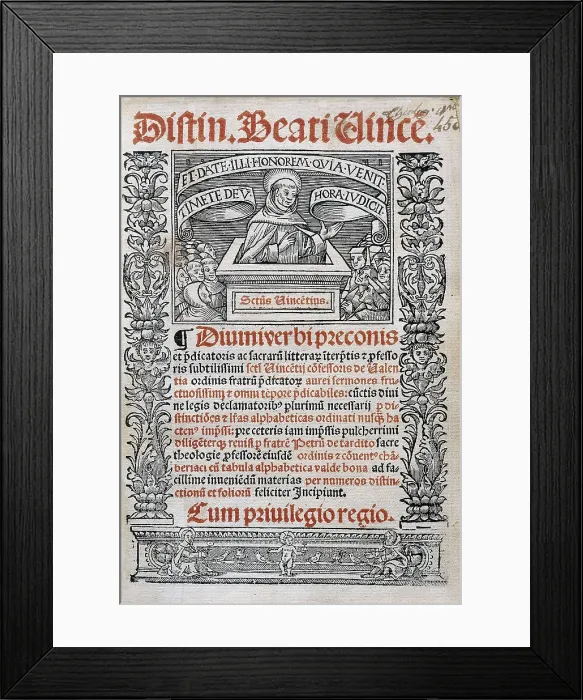 Distin. Beati Uincē.
450
ET·DATE·ILLI·HONOREM·QVIA·VENIT·
TIMETE DEV̄ HORA·IVDICII
Sctūs Uincētius.
¶ Diuini verbi preconis
et p̄dicatoris ac sacrarū litterarꝝ īterp̄tis ⁊ ꝓfesso
ris subtilissimi scti Uincētij cōfessoris de Ualen
tia ordinis fratrū p̄dicatoꝝ aurei sermones fru
ctuosissimi ⁊ omni tēpore p̄dicabiles: cūctis diui
ne legis declamatoribꝰ plurimū necessarij ꝑ di
stinctiōes ⁊ lr̄as alphabeticas ordinati nusꝗ̄ ha
ctenꝰ imp̄ssi: pre ceteris iam imp̄ssis pulcherrimi
diligēterqꝫ reuisi ꝑ fratrē Petrū de tardito sacre
theologie ꝓfessorē eiusdē ordinis ⁊ cōuentꝰ chā-
beriaci cū tabula alphabetica valde bona ad fa-
cillime inueniēdū materias per numeros distin-
ctionū et folioꝝ feliciter Incipiunt.
Cum priuilegio regio.